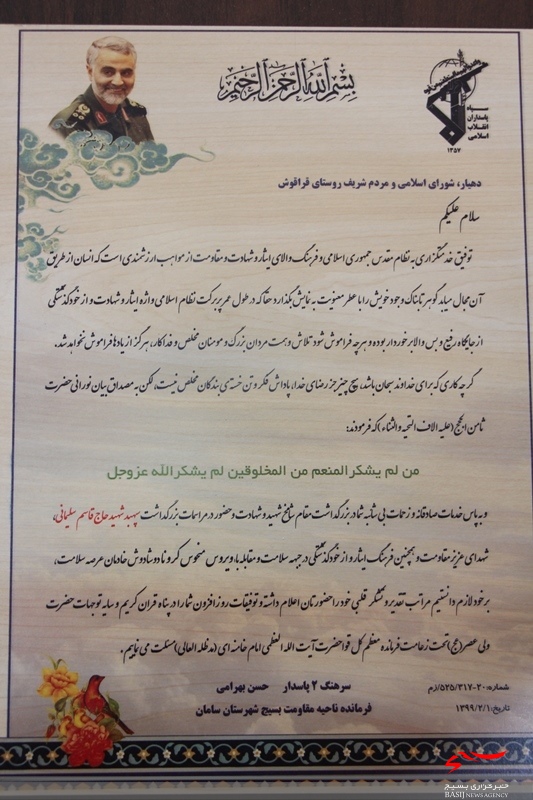 بسم الله الرحمن الرحیم
سپاه
پاسداران
انقلاب
اسلامی
۱۳۵۷
دهیار، شورای اسلامی و مردم شریف روستای قراقوش
سلام علیکم
توفیق خدمتگزاری به نظام مقدس جمهوری اسلامی و فرهنگ والای ایثار و شهادت و مقاومت از مواهب ارزشمندی است که انسان از طریق
آن مجال میابد گوهر تابناک وجود خویش را با عطر معنویت به نمایش بگذارد حقا که در طول عمر پربرکت نظام اسلامی واژه ایثار و شهادت و از خودگذشتگی
از جایگاه رفیع و بس والا برخوردار بوده و هرچه فراموش شود تلاش و همت مردان بزرگ و مومنان مخلص و فداکار، هرگز از یادها فراموش نخواهد شد.
گرچه کاری که برای خداوند سبحان باشد، هیچ چیز جز رضای خدا، پاداش فکر و تن خسته ی بندگان مخلص نیست، لکن به مصداق بیان نورانی حضرت
ثامن الحجج (علیه الاف التحیه و الثناء) که فرمودند:
من لم یشکر المنعم من المخلوقین لم یشکر الله عزوجل
و به پاس خدمات صادقانه و زحمات بی شائبه شما در بزرگداشت مقام شامخ شهید و شهادت و حضور در مراسمات بزرگداشت سپهبد شهید حاج قاسم سلیمانی،
شهدای عزیز مقاومت و همچنین فرهنگ ایثار و از خودگذشتگی در جبهه سلامت و مقابله با ویروس منحوس کرونا دوشادوش خادمان عرصه سلامت،
بر خود لازم دانستیم مراتب تقدیر و تشکر قلبی خود را حضورتان اعلام داشته و توفیقات روزافزون شما را در پناه قران کریم و سایه توجهات حضرت
ولی عصر (عج) تحت زعامت فرمانده معظم کل قوا حضرت آیت الله العظمی امام خامنه ای (مدظله العالی) مسئلت می نماییم.
سرهنگ ۲ پاسدار حسن بهرامی
فرمانده ناحیه مقاومت بسیج شهرستان سامان
شماره: ۵۲۵/۳۱۷-۲۰/زم
تاریخ: ۱۳۹۹/۲/۱
بسیج
خبرگزاری بسیج
BASIJ NEWS AGENCY